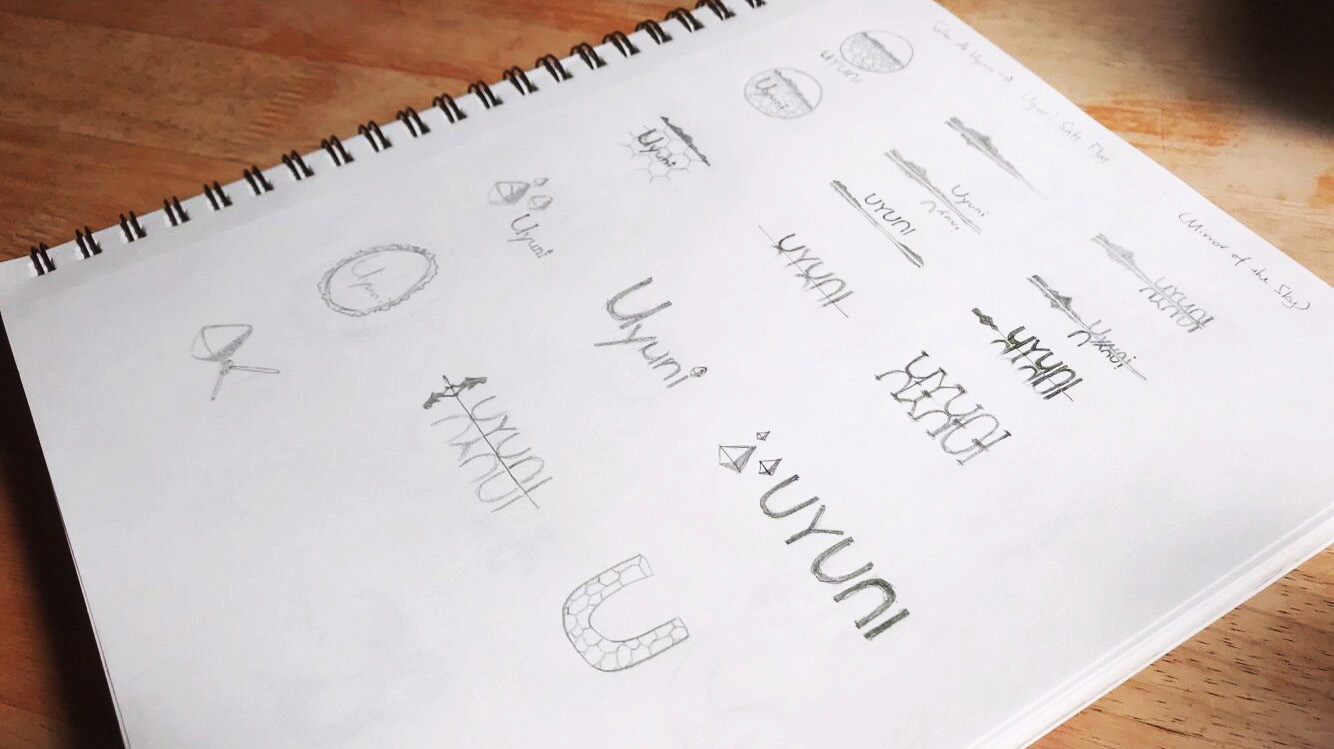 Uyuni Salt Flat
(Mirror of the Sky)
UYUNI
Uyuni
UYUNI
Uyuni
UYUNI
Uyuni
Uyuni
UYUNI
UYUNI
Uyuni
Uyuni
UYUNI
Uyuni
UYUNI
UYUNI
U